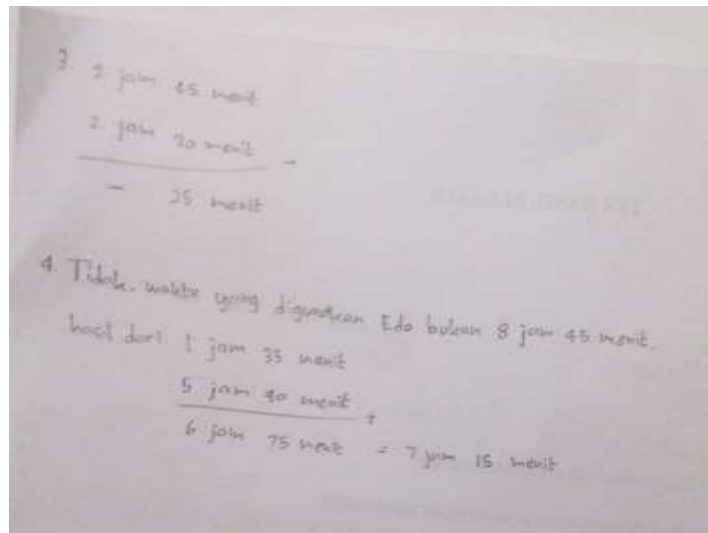 3. 2 jam 45 menit
2 jam 20 menit -
- 25 menit
4. Tidak, waktu yang digunakan Edo bukan 8 jam 45 menit.
hasil dari 1 jam 35 menit
5 jam 40 menit +
6 jam 75 menit = 7 jam 15 menit